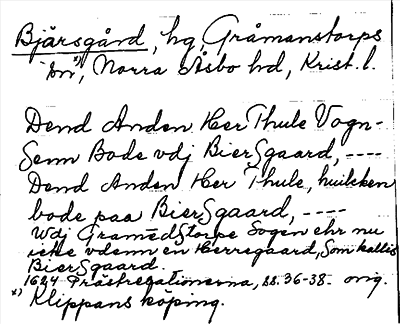 Bjärsgård, hg, Gråmanstorps
sn x), Norra Åsbo hd, Krist. l.
Dend Anden Her Thule Vogn-
Senn Bode vdj BierSgaard, ----
Dend Anden Her Thule, huilcken
bode paa BierSgaard, ----
Wdj GramedStorpe Sogen ehr nu
icke vdenn en Herregaard, Som kallis
BierSgaard.
1624 Prästrelationerna, ss. 36-38. orig.
x) Klippans köping.